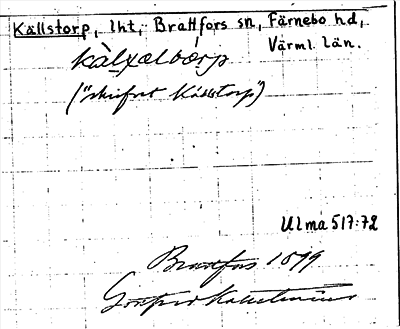 Källstorp, lht, Brattfors sn, Färnebo hd,
Värml. län.
("skrifvet Källstorp")
Ulma 517:72
Brattfors 1899
Gottfrid Kallstenius